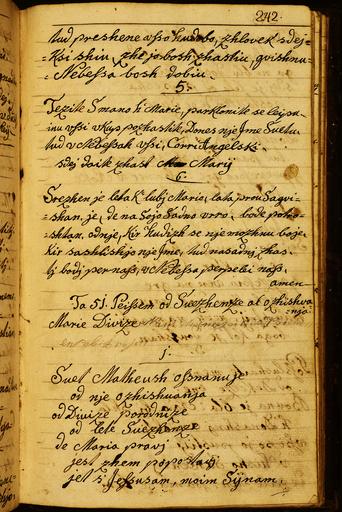 242.
tud preshene vsso hudobo, zhlovek sdej-
Ksi shiu, zhe jo bosh zhastiu, gvishnu
Nebessa bosh dobiu.
5.
Tezite Smano k Marie, parklonite se leipu-
inu vssi vkup pozhastite, Dones nje Jme Suetu
tud v Nebessah vssi, Corri Angelski
sdej daite zhast Marij
6
Srezhen je leta k lubj Marie, lata prou sagvi-
shan je, de na Sojo Samo vero, bode potro-
shtan, od nje, kir hudizh se nje mozhnu boje
kir sashlishjo nje Jme, tud na sadnj zhas
bodj per nass, v Nebessa perpelei nass,
amen
Ta 51. Peissem od Suezhenze al ozhishua
nja
Marie Divize
1.
Suet Matheush osnanuje
od nje ozhishuanja
od Divize porodnize
od Lete Suezhenze
de Maria pravj
jest zhem popotavj
jet s' Jessusam, moim Sÿnam,